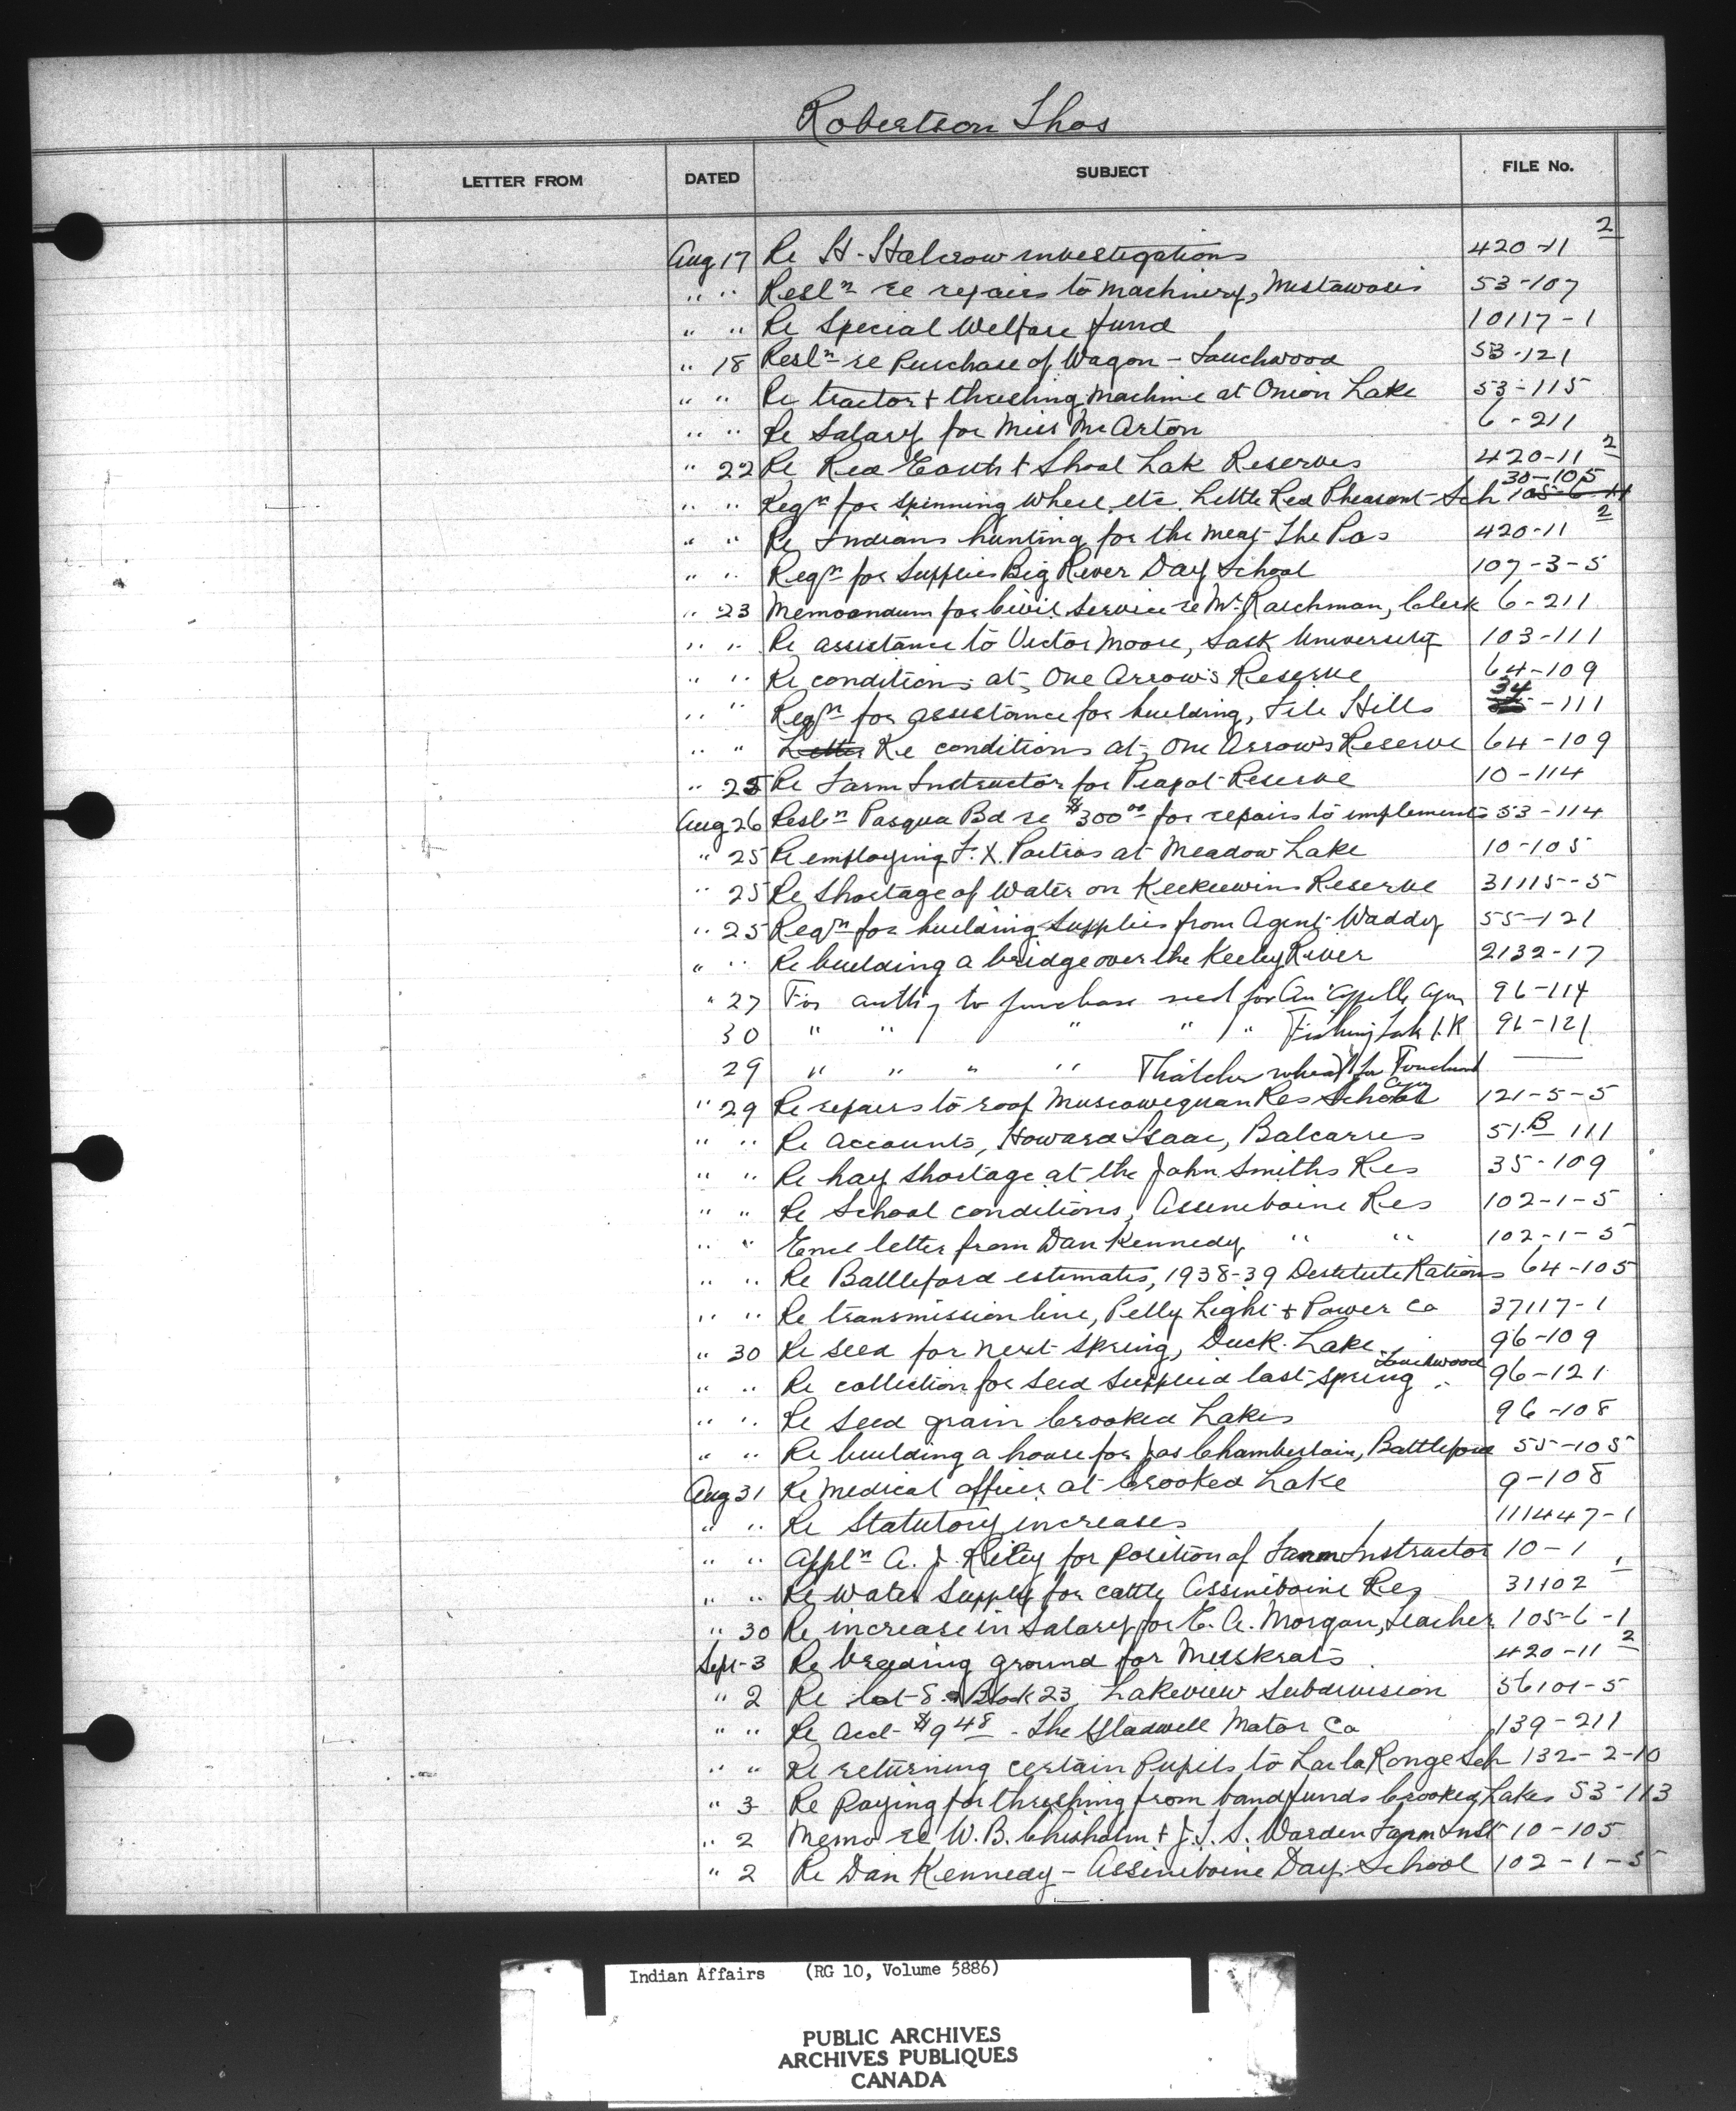 Robertson Thos
LETTER FROM DATED SUBJECT FILE No.
Aug 17 Re H. Halcrow investigations 420-11 2
" " Resln re repairs to machinery, Mistawasis 53-107
" " Re Special Welfare fund 10117-1
" 18 Resln re Purchase of Wagon - Touchwood 53-121
" " Re tractor + threshing machine at Onion Lake 53-115
" " Re Salary for Miss McArton 6-211
" 22 Re Red Earth + Shoal Lak Reserves 420-11 2
" " Reqn for spinning wheel etc. Little Red Pheasant Sch 30-105
" " Re Indians hunting for the meat The Pas 420-11 2
" " Reqn for Supplies Big River Day School 107-3-5
" 23 Memoondum for Civil Service re Mr Raichman, Clerk 6-211
" " Re assistance to Victor Moore, Sask University 103-111
" " Re conditions at One Arrow's Reserve 64-109
" " Reqn for assistance for building, File Hills 34-111
" " Letter Re conditions at One Arrows Reserve 64-109
" 25 Re Farm Instructor for Piapot Reserve 10-114
Aug 26 Resln Pasqua Bd re $300.00 for repairs to implements 53-114
" 25 Re employing F. X. Poitras at Meadow Lake 10-105
" 25 Re Shortage of Water on Keekeewins Reserve 31115-5
" 25 Reqn for building Supplies from Agent Waddy 55-121
" " Re building a bridge over the Keeley River 2132-17
" 27 For auth'y to purchase seed for Qu'Appelle Agcy 96-114
30 " " " " " Fishing Lak I.R 96-121
29 " " " " Thatcher wheat for Touchwood Agcy
" 29 Re repairs to roof Muscowequan Res School 121-5-5
" " Re Accounts, Howard Isaac, Balcarres 51-B 111
" " Re hay shortage at the John Smiths Res 35-109
" " Re School conditions, Assiniboine Res 102-1-5
" " Encl letter from Dan Kennedy " " 102-1-5
" " Re Battleford estimates, 1938-39 Destitute Rations 64-105
" " Re transmission line, Pelly Light + Power Co 37117-1
" 30 Re seed for next spring, Duck Lake 96-109
" " Re collection for seed supplied last spring Touchwood 96-121
" " Re seed grain Crooked Lakes 96-108
" " Re building a house for Jas Chamberlain, Battleford 55-105
Aug 31 Re Medical officer at Crooked Lake 9-108
" " Re Statutory increases 111447-1
" " Appln A. J. Riley for position of Farm Instructor 10-1
" " Re Water Supply for cattle Assiniboine Res 31102
" 30 Re increase in Salary for E. A. Morgan, Teacher 105-6-1
Sept 3 Re breeding ground for Muskrats 420-11 2
" 2 Re lot-8 Block 23, Lakeview Subdivision 56101-5
" " Re Acct $9.48 - The Gladwell Motor Co 139-211
" " Re returning certain Pupils to Lac la Ronge Sch 132-2-10
" 3 Re Paying for threshing from band funds Crooked Lakes 53-113
" 2 Memo re W. B. Chisholm + J. T. S. Warden Farm Inst 10-105
" 2 Re Dan Kennedy - Assiniboine Day School 102-1-5
Indian Affairs (RG 10, Volume 5886)
PUBLIC ARCHIVES
ARCHIVES PUBLIQUES
CANADA